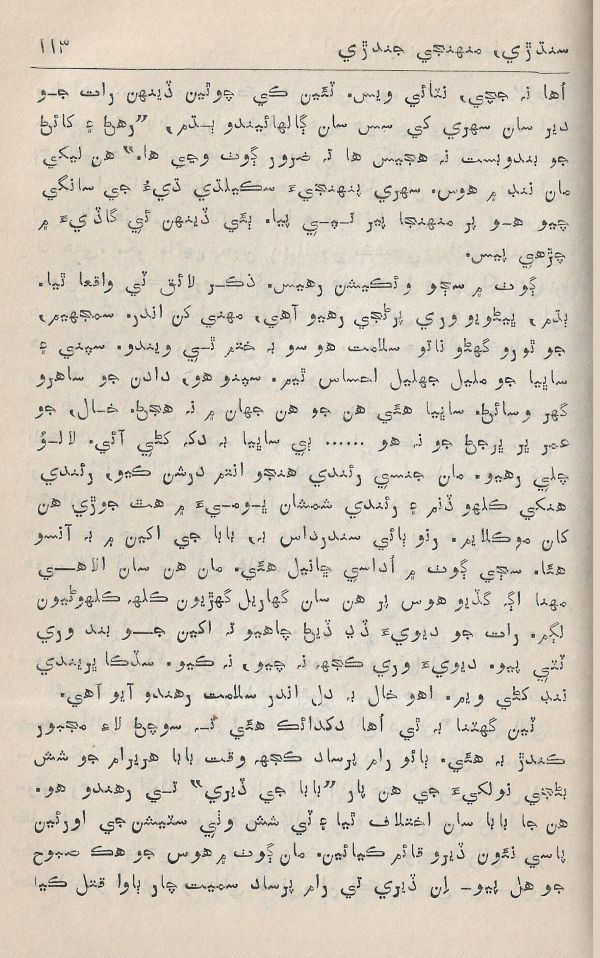 سنڌڙي، منهنجي جندڙي ١١٣
اُها نہ جچي، نٽائي ويس. ٽئين کي چوٿين ڏينهن رات جو
دير سان سهري کي سس سان ڳالهائيندو ٻڌم، ”رهڻ ۽ کائڻ
جو بندوبست نہ هجيس ها تہ ضرور ڳوٺ وڃي ها.“ هن ليکي
مان ننڊ ۾ هوس. سهري پنهنجيءَ سڪيلڌي ڌيءُ جي سانگي
چيو هو پر منهنجا پير تپي پيا. ٻئي ڏينهن ئي گاڏيءَ ۾
چڙهي پيس.
ڳوٺ ۾ سڄو وئڪيشن رهيس. ذڪر لائق ٽي واقعا ٿيا.
ٻڌم، پيڻويو وري پرڻجي رهيو آهي، مهني کن اندر. سمجهيم،
جو ٿورو گهڻو ناتو سلامت هو سو بہ ختم ٿي ويندو. سپني ۽
ساڀيا جو مليل جهليل احساس ٿيم. سپنو هو، دادن جو ساهرو
گهر وسائڻ. ساڀيا هئي هن جو هن جهان ۾ نہ هجڻ. خال، جو
عمر ڀر ڀرجڻ جو نہ هو ...... ٻي ساڀيا بہ دکہ کڻي آئي. لالو
چلي رهيو. مان جنسي رئندي هنجو انتم درشن ڪيو، رئندي
هنکي ڪلهو ڏنم ۽ رئندي شمشان ڀوميءَ ۾ هٿ جوڙي هن
کان موڪلايم. رنو ٻائي سندرداس بہ، بابا جي اکين ۾ بہ آنسو
هئا. سڄي ڳوٺ ۾ اُداسي ڇانيل هئي. مان هن سان الاهي
مهنا اڳہ گڏيو هوس پر هن سان گهاريل گهڙيون ڪلهہ ڪلهوڻيون
لڳم. رات جو ديويءَ ڏڍ ڏيڻ چاهيو تہ اکين جو بند وري
ٽٽي پيو. ديويءَ وري ڪجهہ نہ چيو، نہ ڪيو. سڏڪا ڀريندي
ننڊ کڻي ويم. اهو خال بہ دل اندر سلامت رهندو آيو آهي.
ٽين گهٽنا بہ ٿي اُها دکدائڪ هئي تہ سوچڻ لاءِ مجبور
ڪندڙ بہ هئي. ٻائو رام پرساد ڪجهہ وقت بابا هريرام جو شش
بڻجي نولکيءَ جي هن پار ”بابا جي ڏيري“ تي رهندو هو.
هن جا بابا سان اختلاف ٿيا ۽ ٽي شش وٺي سٽيشن جي اورئين
پاسي نئون ڏيرو قائم ڪيائين. مان ڳوٺ ۾ هوس جو هڪ صبوح
جو هل پيو- اِن ڏيري تي رام پرساد سميت چار ٻاوا قتل ڪيا